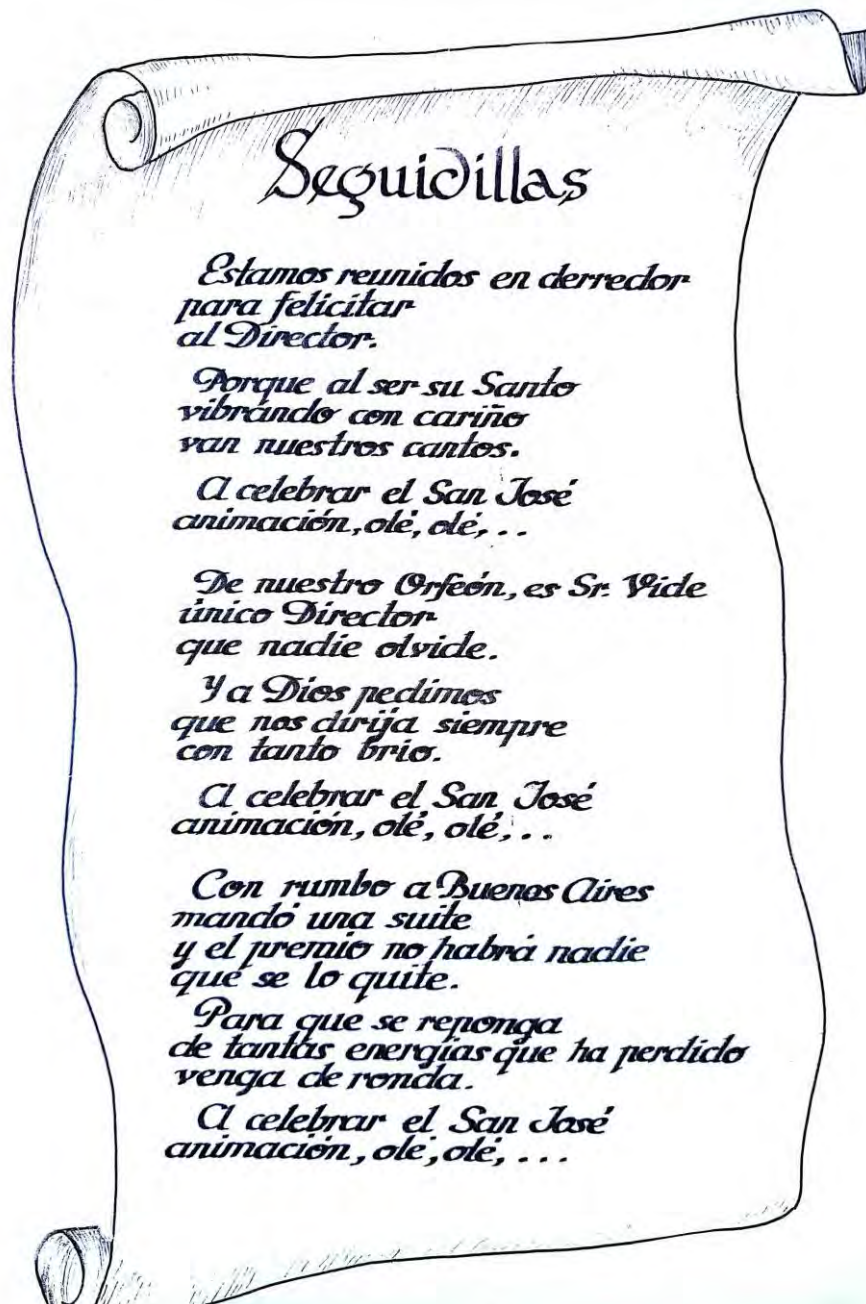 Seguidillas
Estamos reunidos en derredor
para felicitar
al Director.
Porque al ser su Santo
vibrando con cariño
van nuestros cantos.
A celebrar el San José
animación, olé, olé, . . .
De nuestro Orfeón, es Sr. Vide
único Director
que nadie olvide.
Y a Dios pedimos
que nos dirija siempre
con tanto brio.
A celebrar el San José
animación, olé, olé, . . .
Con rumbo a Buenos Aires
mandó una suite
y el premio no habrá nadie
que se lo quite.
Para que se reponga
de tantas energías que ha perdido
venga de ronda.
A celebrar el San José
animación, olé, olé, . . .